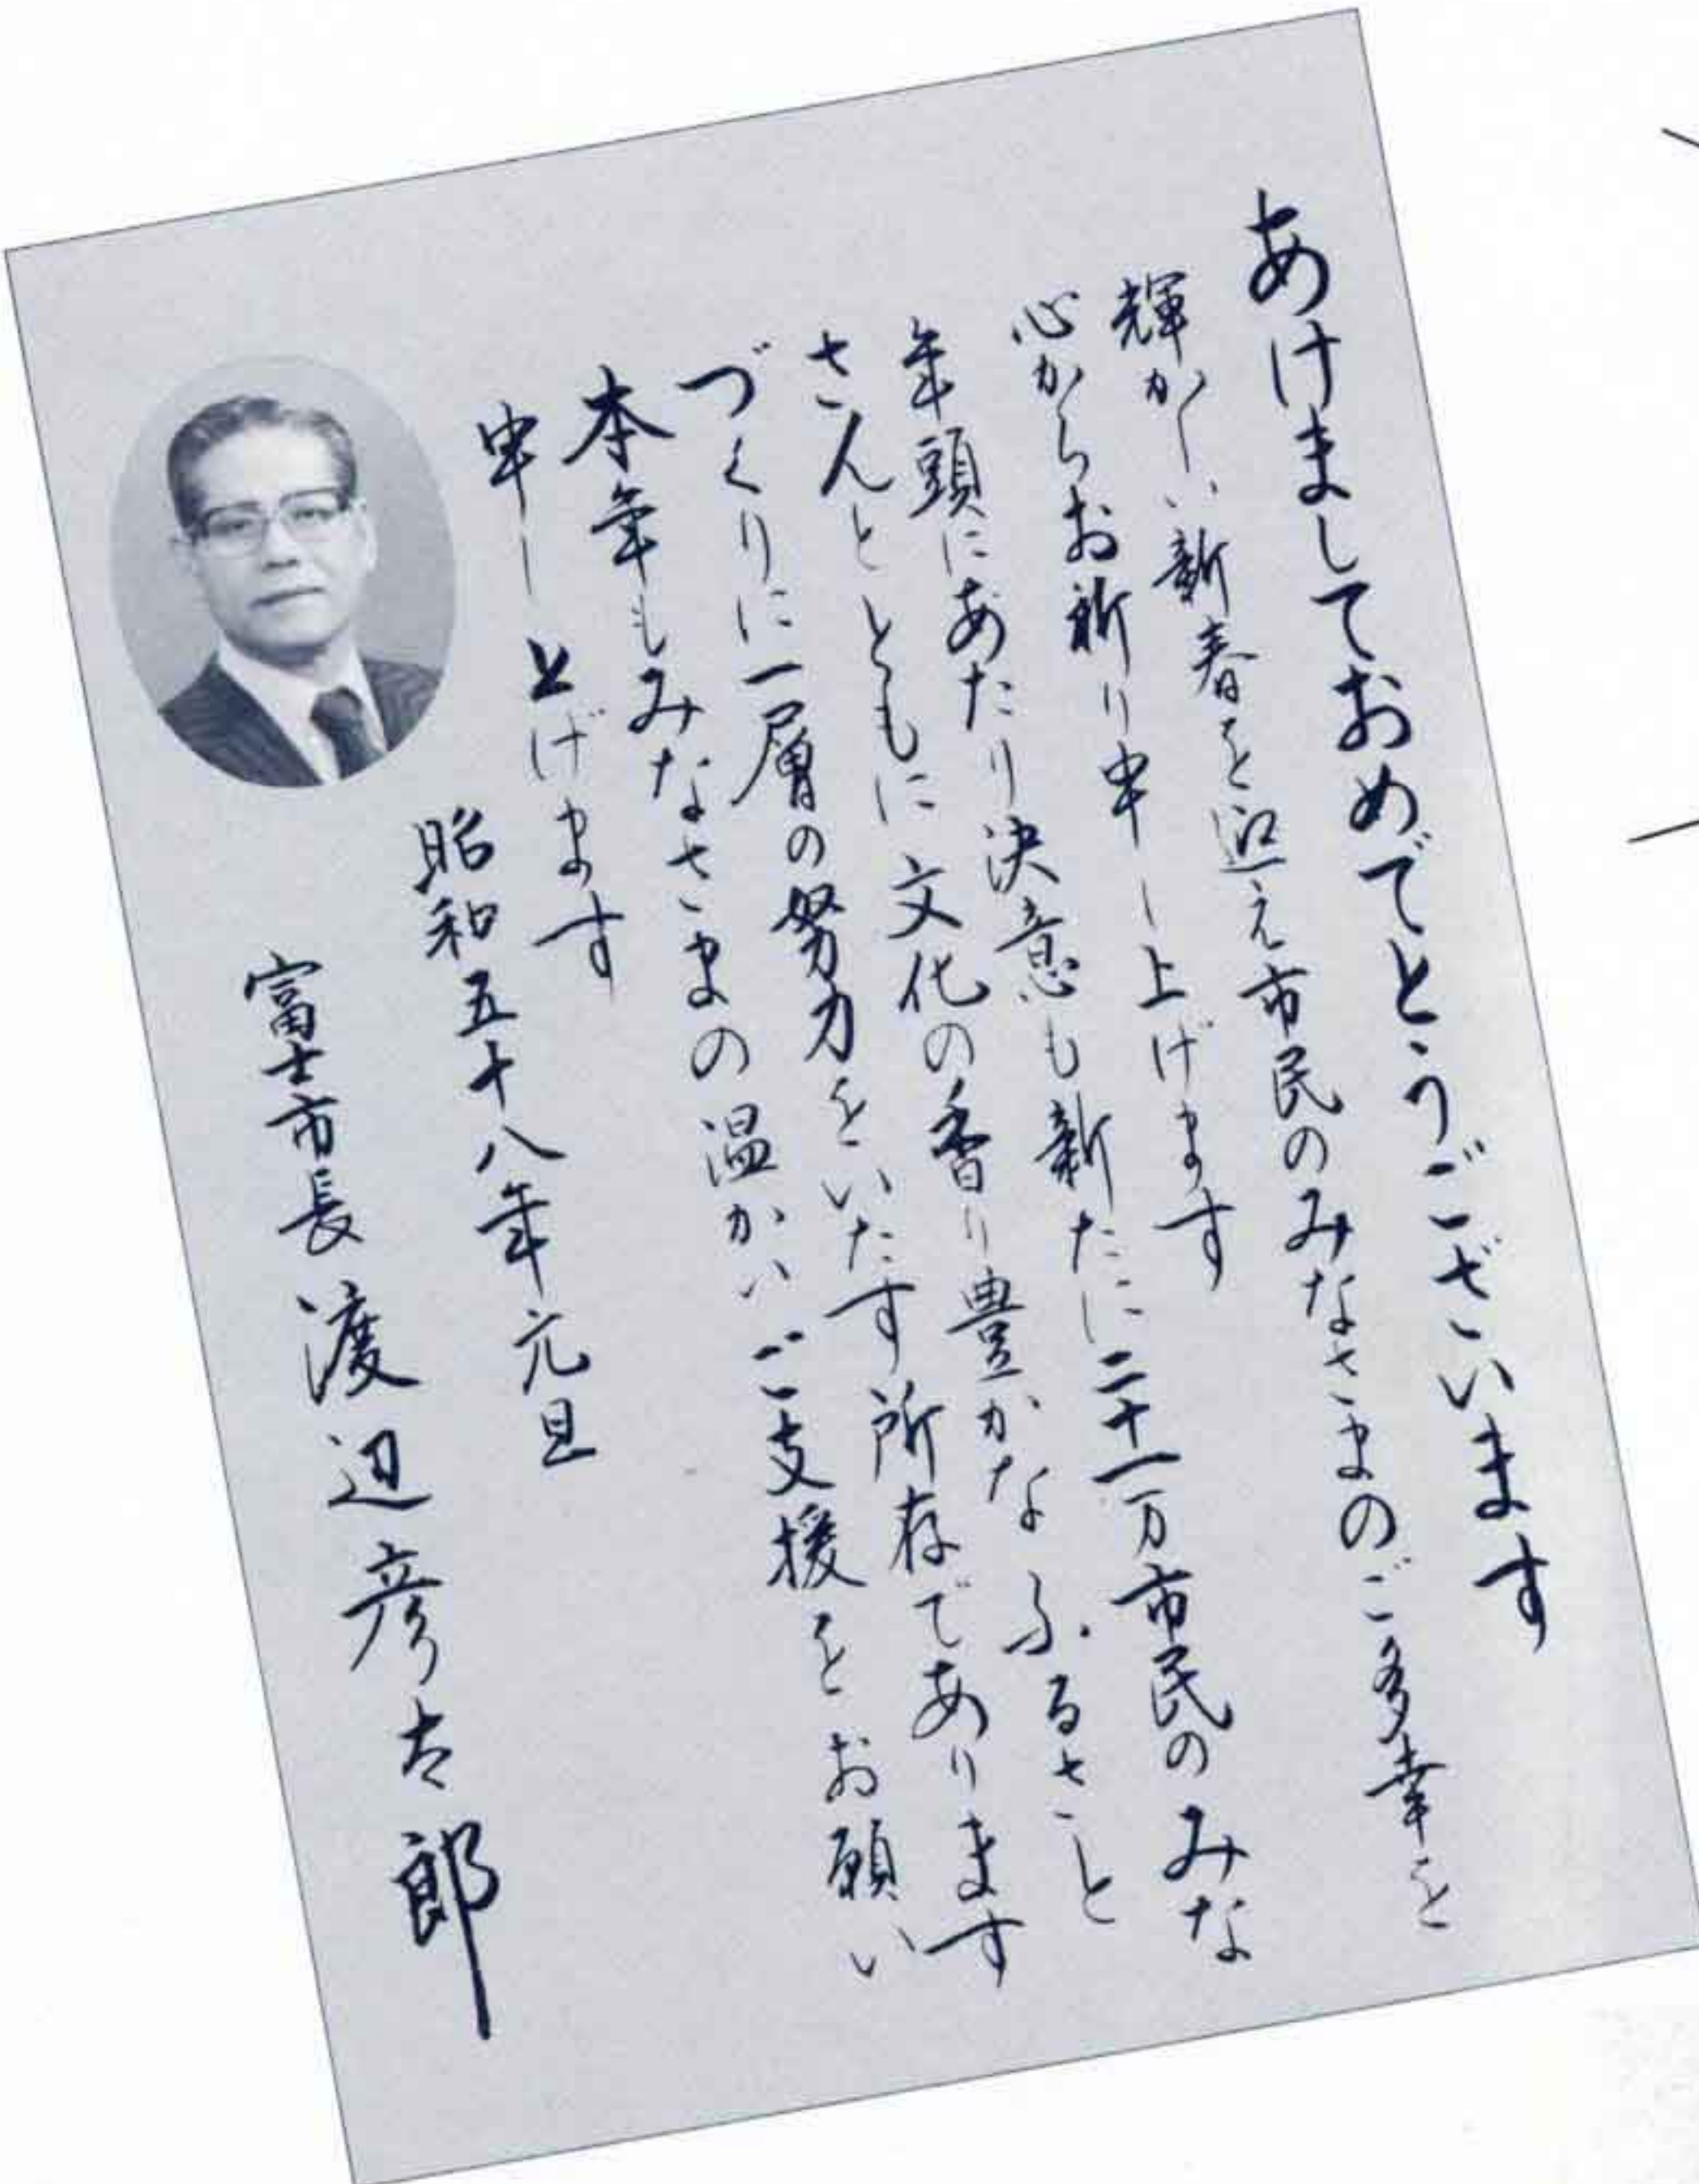 あけましておめでとうございます
輝かしい新春を迎え市民のみなさまのご多幸を
心からお祈り申し上げます
年頭にあたり決意も新たに二十一万市民のみな
さんとともに文化の香り豊かなふるさと
づくりに一層の努力をいたす所存であります
本年もみなさまの温かいご支援をお願い
申し上げます
昭和五十八年元旦
富士市長 渡辺彦太郎